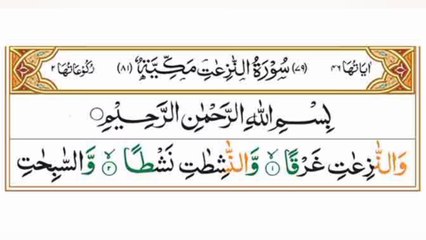 اٰیَاتُهَا ٤٦ (٧٩) سُوْرَةُ النّٰزِعٰتِ مَكِّیَّةٌ (٨١) رُكُوْعَاتُهَا ٢
بِسْمِ اللّٰهِ الرَّحْمٰنِ الرَّحِیْمِ
وَالنّٰزِعٰتِ غَرْقًا ۙ﴿١﴾ وَّالنّٰشِطٰتِ نَشْطًا ۙ﴿٢﴾ وَّالسّٰبِحٰتِ